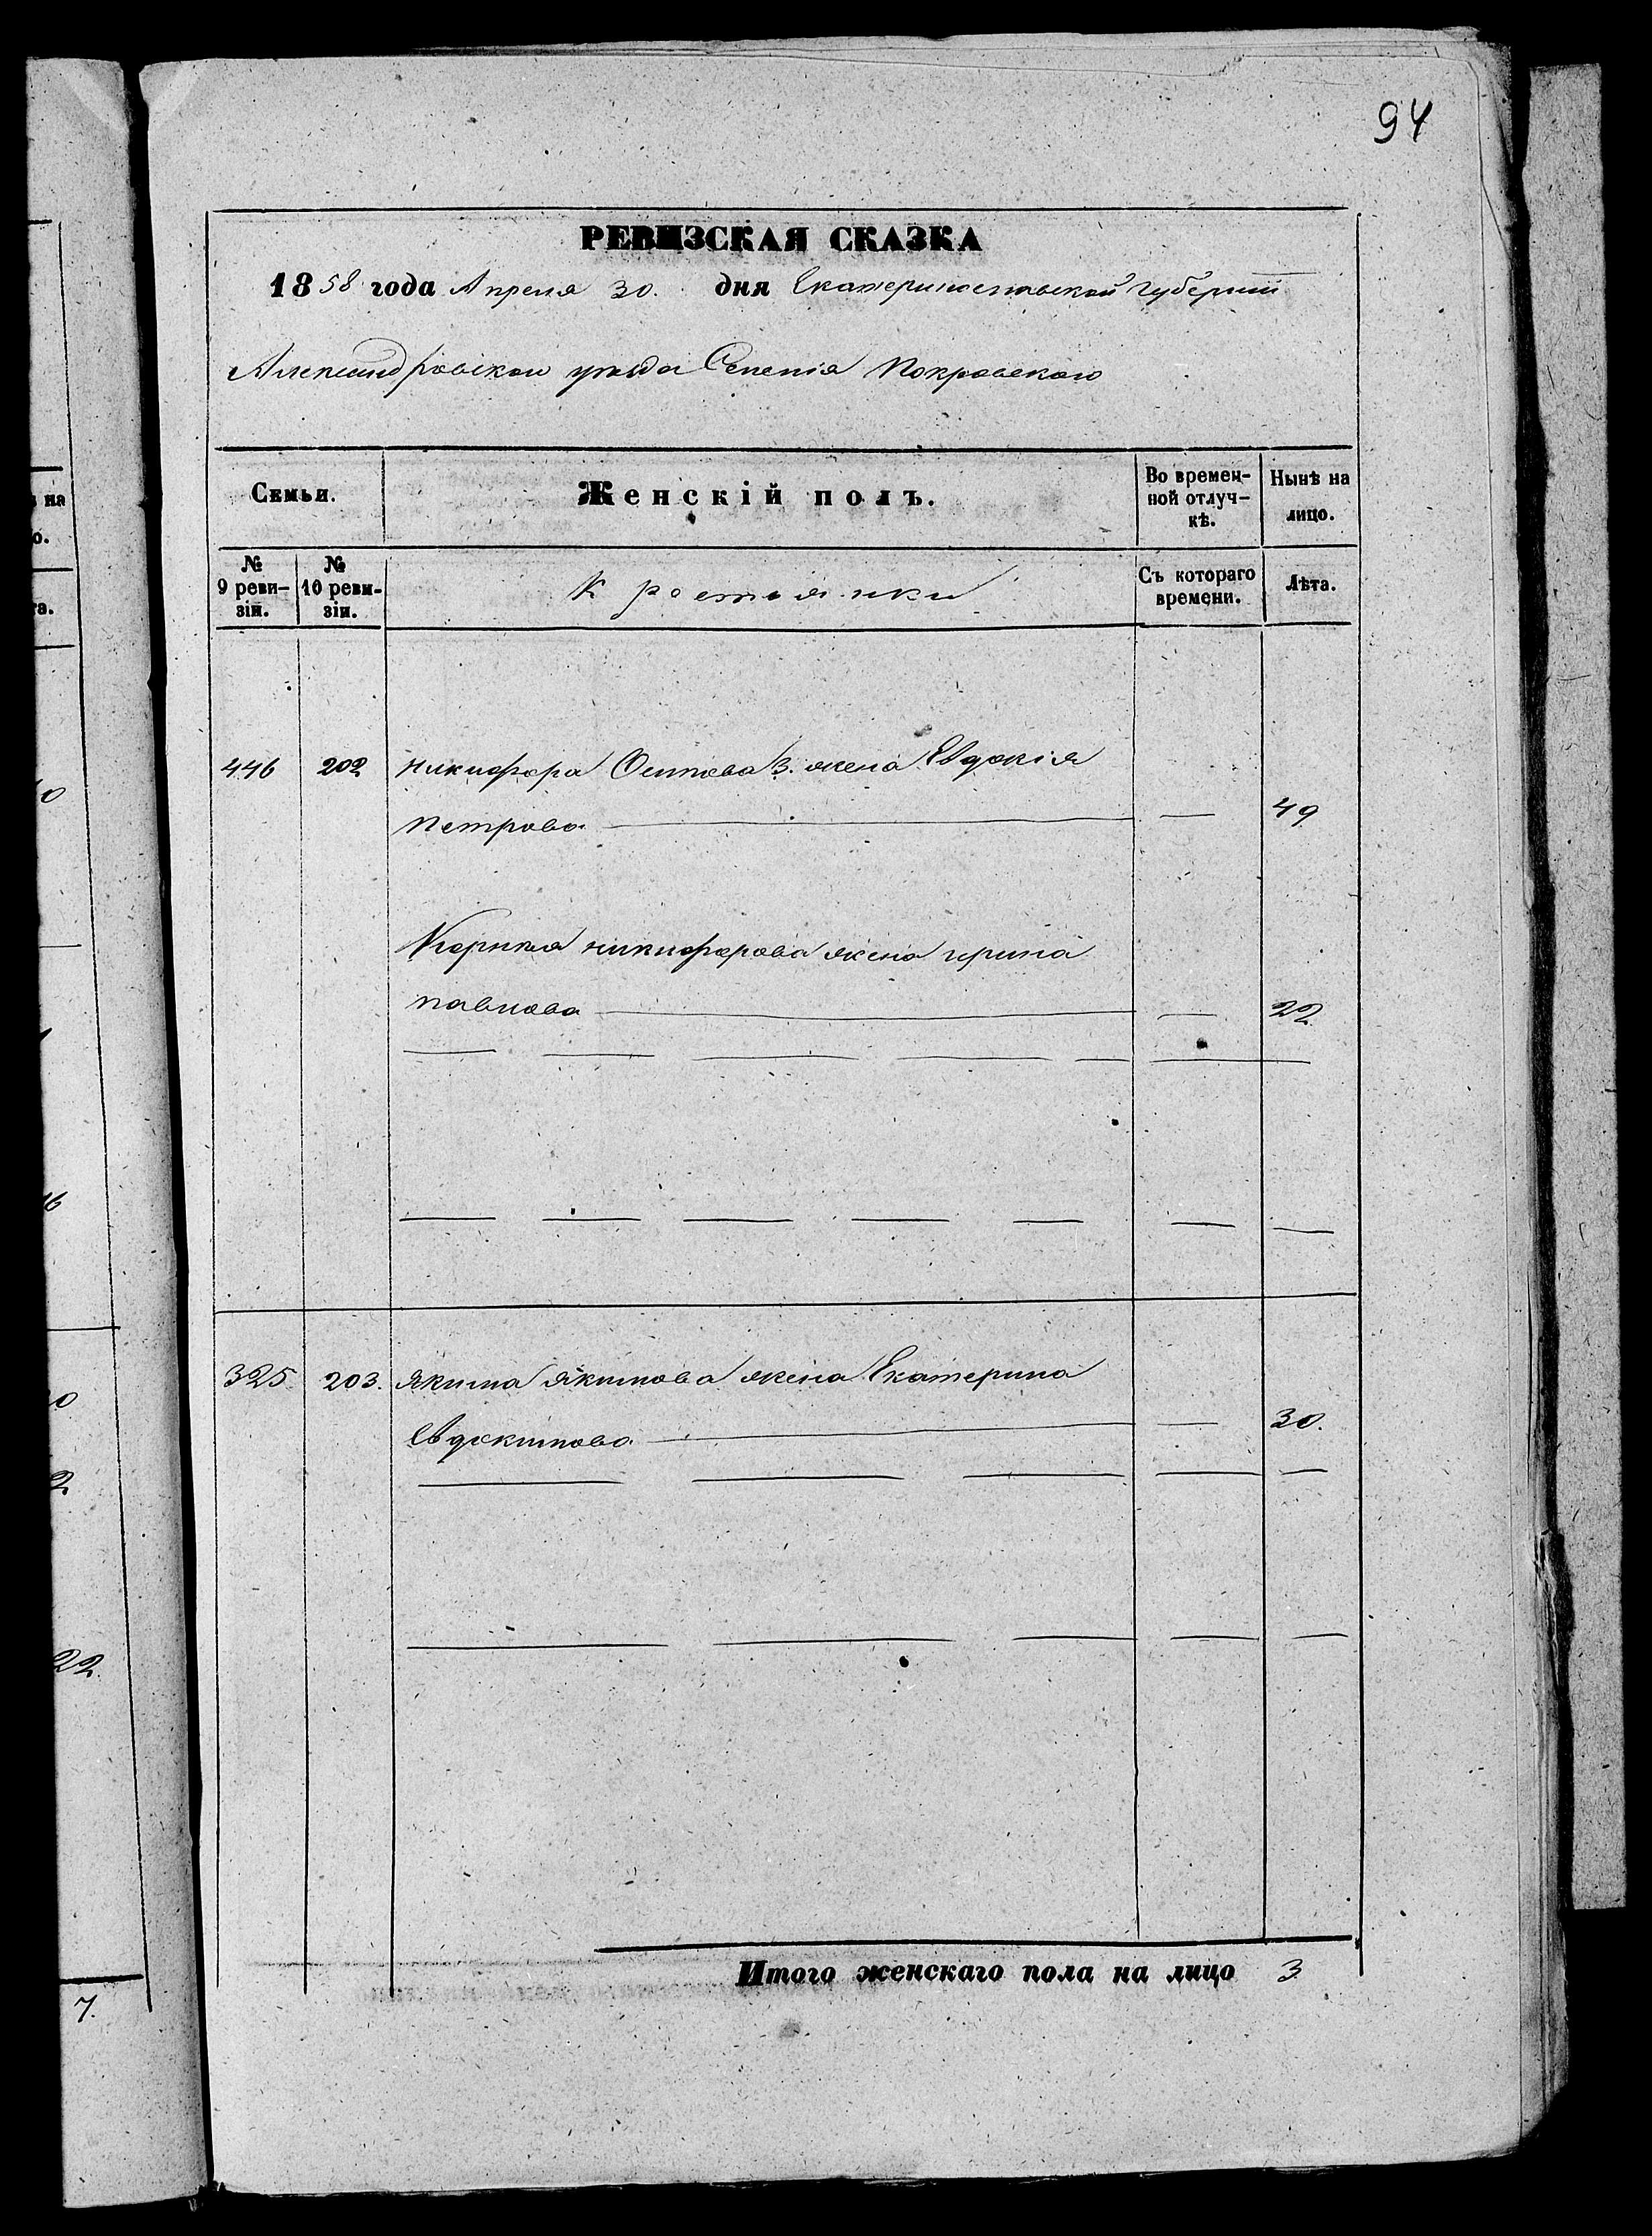 94
РЕВИЗСКАЯ СКАЗКА
1858 года Апреля 30. дня Екатеринославской Губернии
Александровскаго уезда Селенія Покровскаго
Семьи.
Женскій полъ.
Во времен-
ной отлуч-
кѣ.
Нынѣ на
лицо.
№
9 реви-
зіи.
№
10 реви-
зіи.
Крестьянки
Съ котораго
времени.
Лѣта.
446 202 Никифора Осипова 3. жена Евдокія
Петрова — 49
Никифорова жена Ирина
Павлова — 22
325 203. Якима Якимова жена Екатерина
Евдокимова — 30.
Итого женскаго пола на лицо 3
на
о.
та.
0
16
0
2
22.
7.